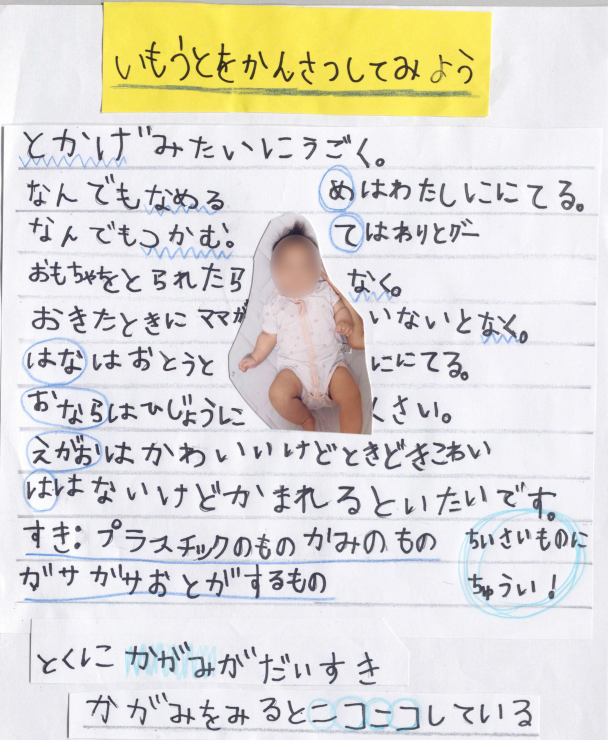 いもうとをかんさつしてみよう
とかげみたいにうごく。
なんでもなめる
めはわたしににてる。
なんでもつかむ。
てはわりとグー
おもちゃをとられたら
なく。
おきたときにママが
いないとなく。
はなはおとうと
ににてる。
おならはひじょうに
くさい。
えがおはかわいいけどときどきこわい
ははないけどかまれるといたいです。
すき：プラスチックのもの かみのもの
ガサガサおとがするもの
ちいさいものに
ちゅうい！
とくにかがみがだいすき
かがみをみるとニコニコしている